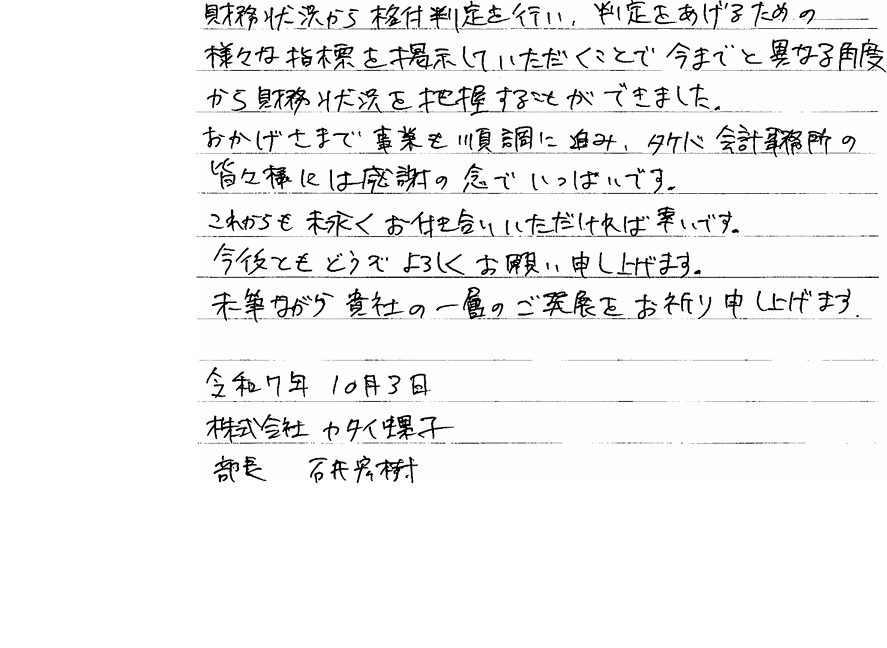 財務状況から格付判定を行い、判定をあげるための
様々な指標を掲示していただくことで今までと異なる角度
から財務状況を把握することができました。
おかげさまで事業も順調に進み、タケバ会計事務所の
皆々様には感謝の念でいっぱいです。
これからも末永くお付き合いいただければ幸いです。
今後ともどうぞよろしくお願い申し上げます。
末筆ながら貴社の一層のご発展をお祈り申し上げます.
令和7年 10月3日
株式会社 カタイ螺子
部長 石井宏樹